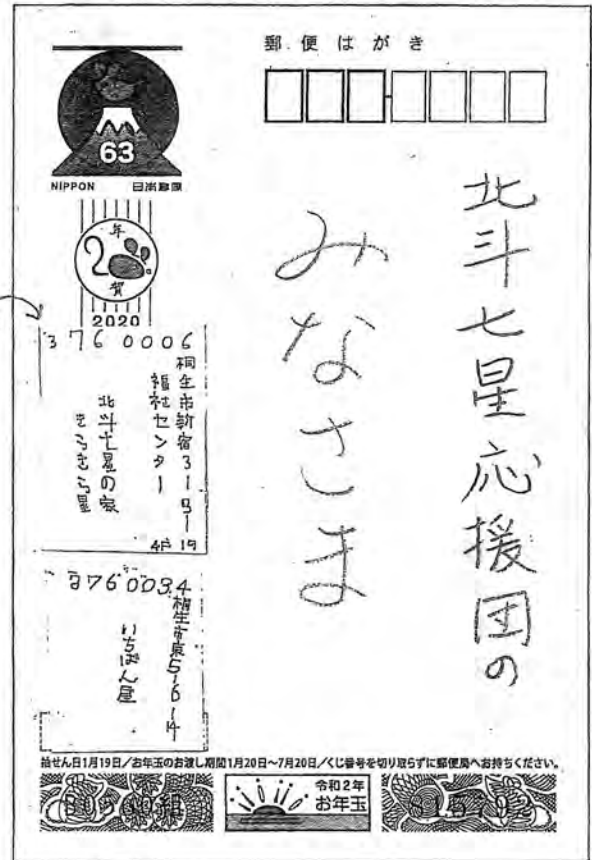 郵便はがき
63
NIPPON 日本郵便
年
20
賀
2020
北斗七星応援団の
みなさま
376 0006
桐生市新宿3-9-19
福祉センター 4F
北斗七星の家
きらきら星
376 0034
桐生市東5-6-14
いちばん星
抽せん日1月19日/お年玉のお渡し期間1月20日〜7月20日/くじ番号を切り取らずに郵便局へお持ちください。
令和2年
お年玉